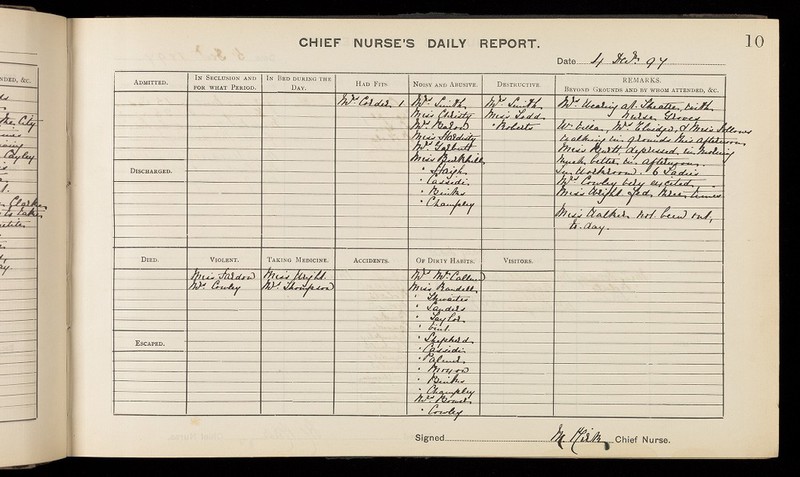 10
CHIEF NURSE'S DAILY REPORT.
Date 4 Decr. 97
NDED, &C.
ADMITTED.
IN SECLUSION AND
FOR WHAT PERIOD.
IN BED DURING THE
DAY.
HAD FITS
NOISY AND ABUSIVE.
DESTRUCTIVE.
REMARKS.
BEYOND GROUNDS AND BY WHOM ATTENDED, &C.
Mrs Calder 1
Mrs Smith
Miss Christy
Mrs Baron
Miss Hardisty
Mrs Tarbutt
Miss Burkhill
" Cassidi
" Binks
" Champley
Mrs Smith
Miss Ladd
" Roberts
at Theatre, with
Nurse Groves
Wt Villa, Mrs & Miss Fellows
walking in grounds this afternoon
Miss depressed in morning
much better in afternoon.
In Workroom. 6 Ladies
Mrs Cowley very excited,
Miss Wright fed three times
Miss Walker not been out,
to-day.
DISCHARGED.
DIED.
VIOLENT.
TAKING MEDICINE.
ACCIDENTS.
OF DIRTY HABITS.
VISITORS.
Miss
Mrs Cowley
Miss Wright
Mrs Thompson
Mrs McCallum
Miss Randell
" Thwaites
" Sanders
" Taylor
" Vint
" Shepherd
" Cassidi
" Palmer
" Binks
" Champley
Mrs
" Cowley
ESCAPED.
Signed M. Kirk, Chief Nurse.